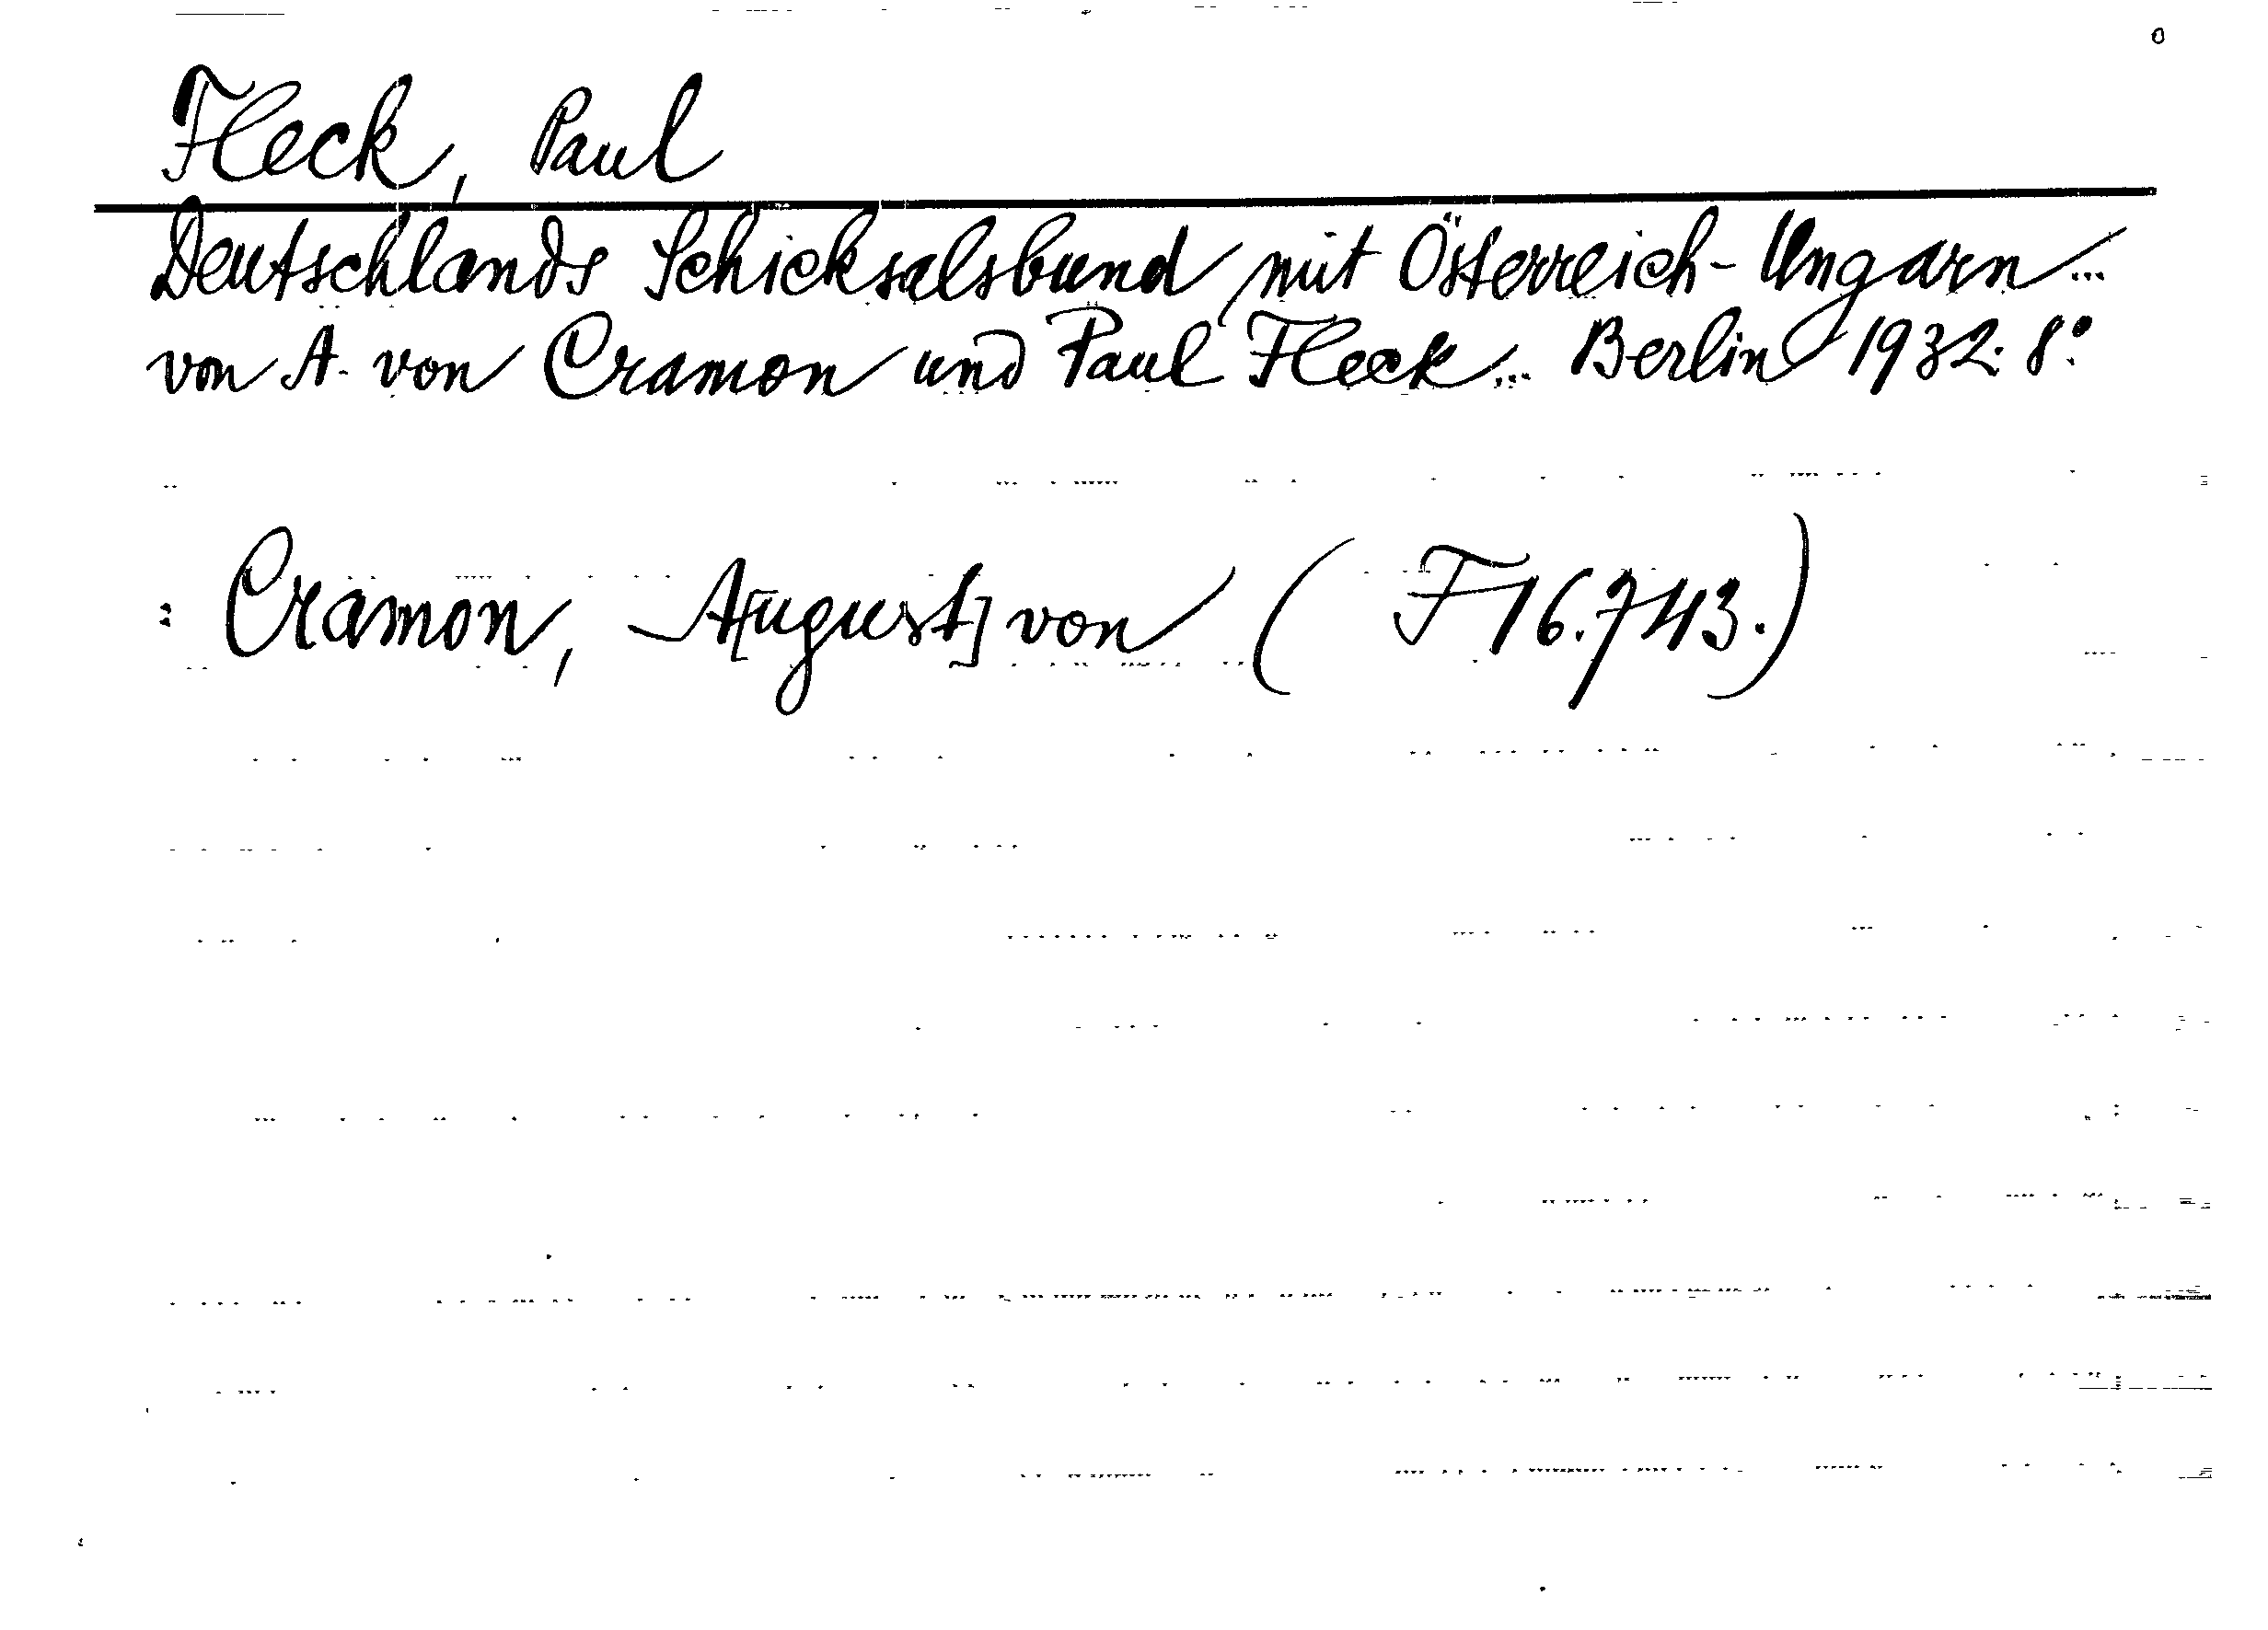 Fleck, Paul
Deutschlands Schicksalsbund mit Österreich-Ungarn...
von A. von Cramon und Paul Fleck... Berlin 1932. 8°.
: Cramon, A[ugust] von ( F 16.743.)